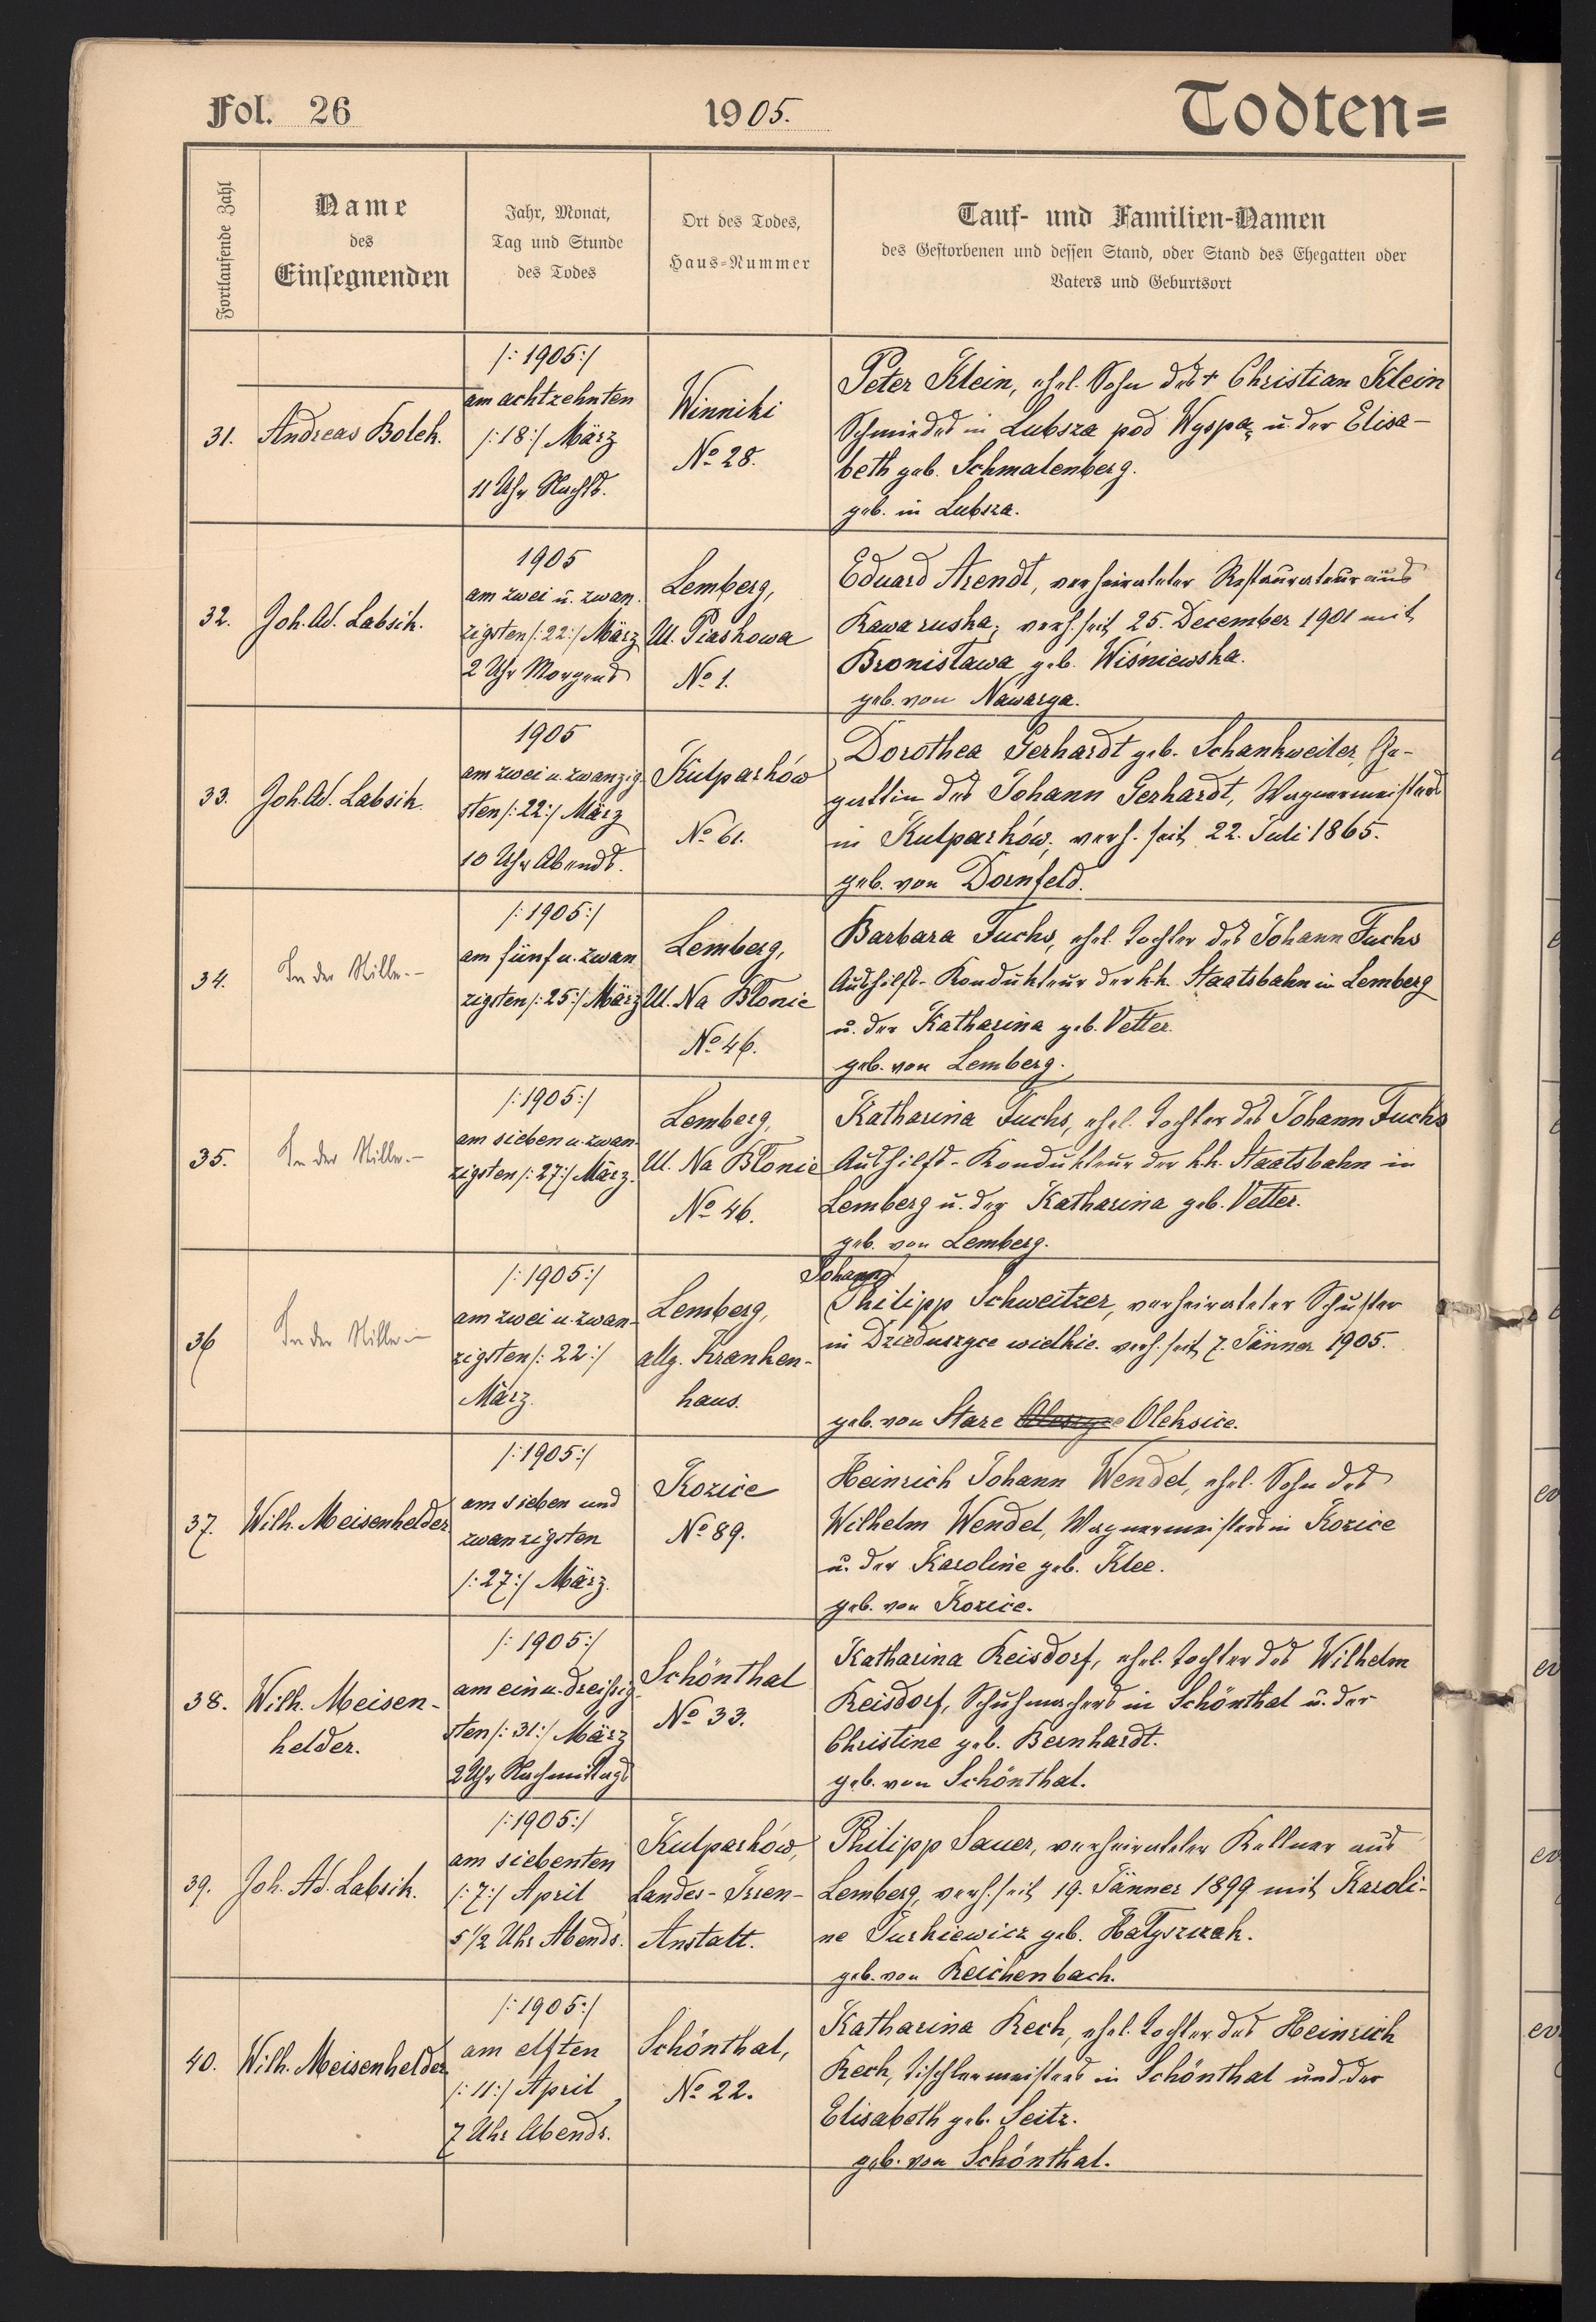 Fol. 26
1905.
Todten=
Fortlaufende Zahl
Name
des
Einsegnenden
Jahr, Monat,
Tag und Stunde
des Todes
Ort des Todes,
Haus-Nummer
Tauf- und Familien-Namen
des Gestorbenen und dessen Stand, oder Stand des Ehegatten oder
Vaters und Geburtsort
31.
Andreas Bolek.
/:1905:/
am achtzehnten
/:18:/ März
11 Uhr Nachts.
Winniki
No 28.
Peter Klein, ehel. Sohn des + Christian Klein
Schmiedes in Lubsza pod Wyspą u. der Elisa-
beth geb. Schmalenberg.
geb. in Lubsza.
32.
Joh. Ad. Labsik.
1905
am zwei u. zwan-
zigsten /:22:/ März
2 Uhr Morgens
Lemberg,
Ul. Piaskowa
No 1.
Eduard Arendt, verheirateter Restaurateur aus
Rawa ruska; verh. seit 25. December 1901 mit
Bronisława geb. Wiśniewska.
geb. von Nawarya.
33.
Joh. Ad. Labsik.
1905
am zwei u. zwanzig-
sten /:22:/ März
10 Uhr Abends.
Kulparków
No 61.
Dorothea Gerhardt geb. Schankweiler, Ge-
gattin des Johann Gerhardt, Wagnermeisters
in Kulparków; verh. seit 22. Juli 1865.
geb. von Dornfeld.
34.
In der Stille.-
/:1905:/
am fünf u. zwan
zigsten /:25:/ März
Lemberg,
Ul. Na Błonie
No 46.
Barbara Fuchs, ehel. Tochter des Johann Fuchs
Aushilfs-Kondukteur der k.k. Staatsbahn in Lemberg
u. der Katharina geb. Vetter.
geb. von Lemberg.
35.
In der Stille.-
/:1905:/
am sieben u. zwan-
zigsten /:27:/ März.
Lemberg,
Ul. Na Błonie
No 46.
Katharina Fuchs, ehel. Tochter des Johann Fuchs
Aushilfs-Kondukteur der k.k. Staatsbahn in
Lemberg u. der Katharina geb. Vetter.
geb. von Lemberg.
36
In der Stille.-
/:1905:/
am zwei u. zwan-
zigsten /:22:/
März.
Lemberg,
allg. Kranken-
haus.
Johann
Philipp Schweitzer, verheirateter Schuster
in Dzieduszyce wielkie. verh. seit 7. Jänner 1905.
geb. von Stare Oleksice.
37.
Wilh. Meisenhelder
/:1905:/
am sieben und
zwanzigsten
/:27:/ März.
Kozice
No 89.
Heinrich Johann Wendel, ehel. Sohn des
Wilhelm Wendel, Wagnermeisters in Kozice
u. der Karoline geb. Klee.
geb. von Kozice.
38.
Wilh. Meisen-
helder.
/:1905:/
am ein u. dreißig-
sten /:31:/ März
2 Uhr Nachmittags
Schönthal
No 33.
Katharina Reisdorf, ehel. Tochter des Wilhelm
Reisdorf, Schuhmachers in Schönthal u. der
Christine geb. Bernhardt.
geb. von Schönthal.
39.
Joh. Ad. Labsik.
/:1905:/
am siebenten
/:7:/ April
5 1/2 Uhr Abends.
Kulparków,
Landes-Irren-
Anstalt.
Philipp Sauer, verheirateter Kellner aus
Lemberg, verh. seit 19. Jänner 1899 mit Karoli-
ne Turkiewicz geb. Hałyszczak.
geb. von Reichenbach.
40.
Wilh. Meisenhelder
/:1905:/
am elften
/:11:/ April
7 Uhr Abends.
Schönthal,
No 22.
Katharina Rech, ehel. Tochter des Heinrich
Rech, Tischlermeisters in Schönthal und der
Elisabeth geb. Seitz.
geb. von Schönthal.